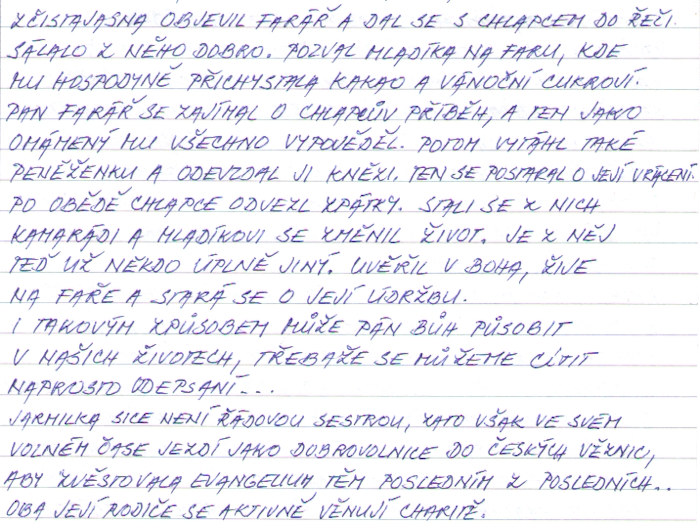 ZČISTAJASNA OBJEVIL FARÁŘ A DAL SE S CHLAPCEM DO ŘEČI.
SÁLALO Z NĚHO DOBRO. POZVAL MLADÍKA NA FARU, KDE
MU HOSPODYNĚ PŘICHYSTALA KAKAO A VÁNOČNÍ CUKROVÍ.
PAN FARÁŘ SE ZAJÍMAL O CHLAPCŮV PŘÍBĚH, A TEN JAKO
OMÁMENÝ MU VŠECHNO VYPOVĚDĚL. POTOM VYTÁHL TAKÉ
PENĚŽENKU A ODEVZDAL JI KNĚZI. TEN SE POSTARAL O JEJÍ VRÁCENÍ.
PO OBĚDĚ CHLAPCE ODVEZL ZPÁTKY. STALI SE Z NICH
KAMARÁDI A MLADÍKOVI SE ZMĚNIL ŽIVOT. JE Z NĚJ
TEĎ UŽ NĚKDO ÚPLNĚ JINÝ. UVĚŘIL V BOHA, ŽIJE
NA FAŘE A STARÁ SE O JEJÍ ÚDRŽBU.
I TAKOVÝM ZPŮSOBEM MŮŽE PÁN BŮH PŮSOBIT
V NAŠICH ŽIVOTECH, TŘEBAŽE SE MŮŽEME CÍTIT
NAPROSTO ODEPSANÍ...
JARMILKA SICE NENÍ ŘÁDOVOU SESTROU, ZATO VŠAK VE SVÉM
VOLNÉM ČASE JEZDÍ JAKO DOBROVOLNICE DO ČESKÝCH VĚZNIC,
ABY ZVĚSTOVALA EVANGELIUM TĚM POSLEDNÍM Z POSLEDNÍCH..
OBA JEJÍ RODIČE SE AKTIVNĚ VĚNUJÍ CHARITĚ.